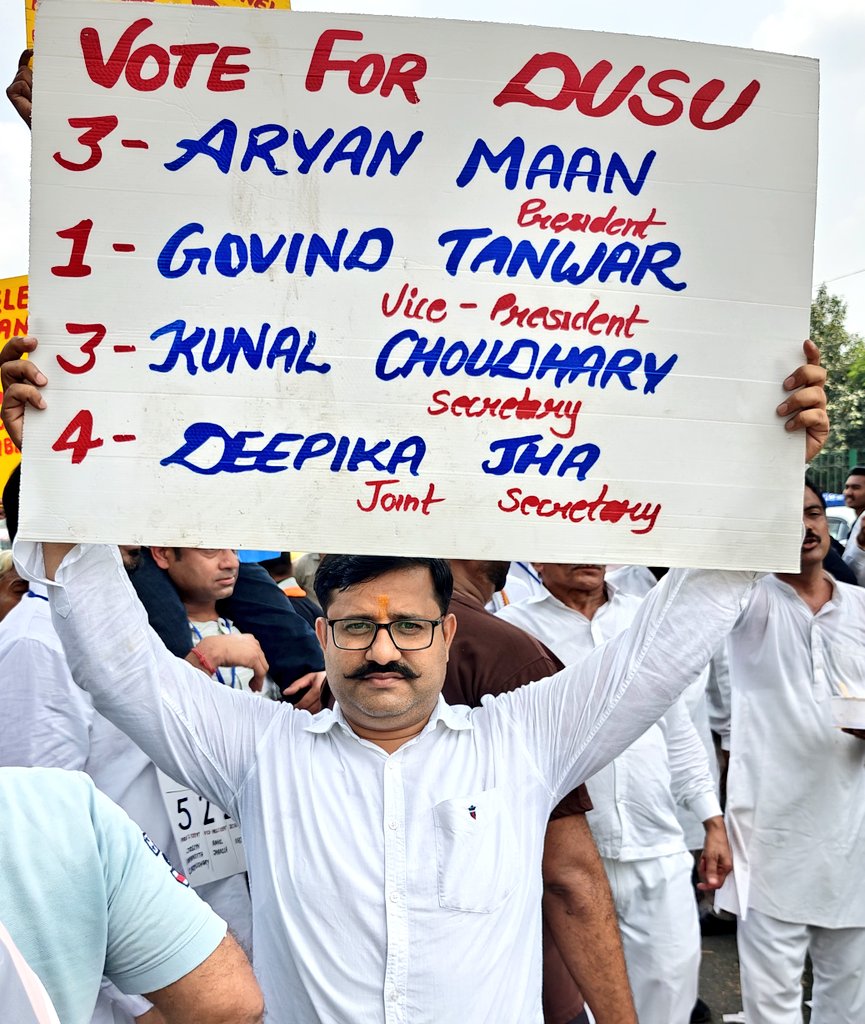 VOTE FOR DUSU
3- ARYAN MAAN
President
1- GOVIND TANWAR
Vice-President
3- KUNAL CHOUDHARY
Secretary
4- DEEPIKA JHA
Joint Secretary
52